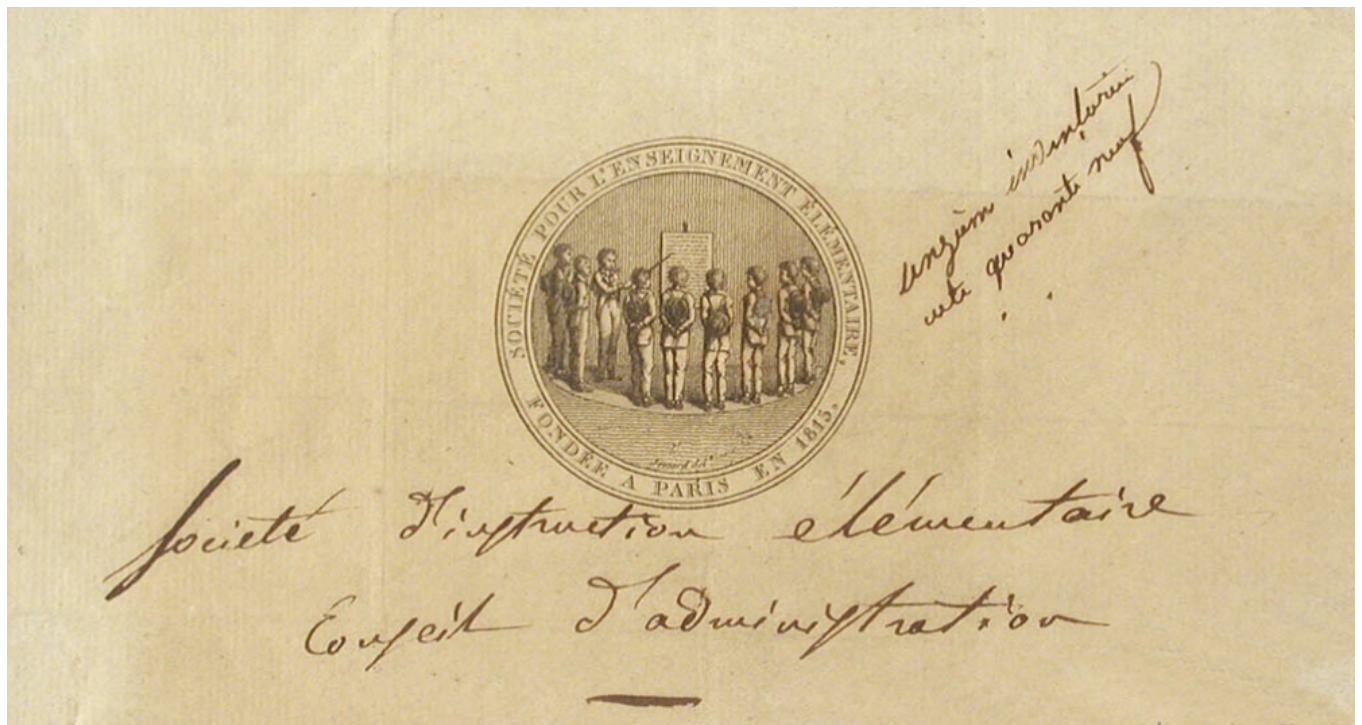 SOCIÉTÉ POUR L'ENSEIGNEMENT ÉLÉMENTAIRE,
FONDÉE A PARIS EN 1815.
quarante neuf
Societé d'instruction élémentaire
Conseil d'administration